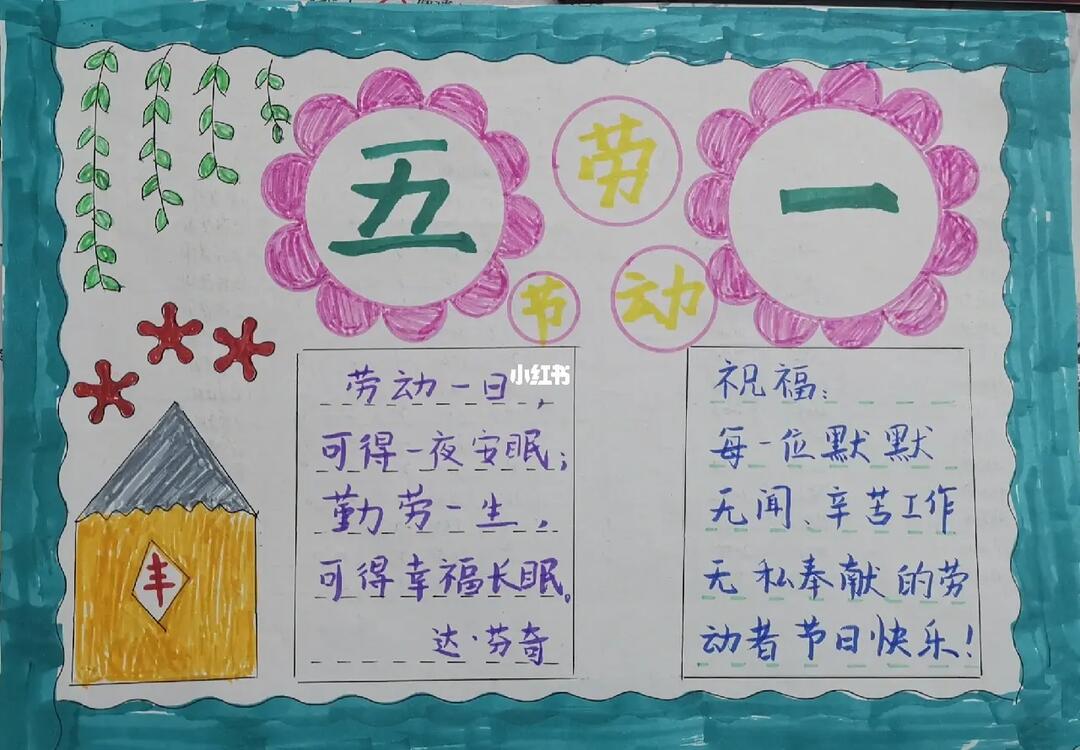 五
一
劳
动
节
小红书
丰
劳动一日，
可得一夜安眠；
勤劳一生，
可得幸福长眠。
达·芬奇
祝福：
每一位默默
无闻、辛苦工作
无私奉献的劳
动者节日快乐！